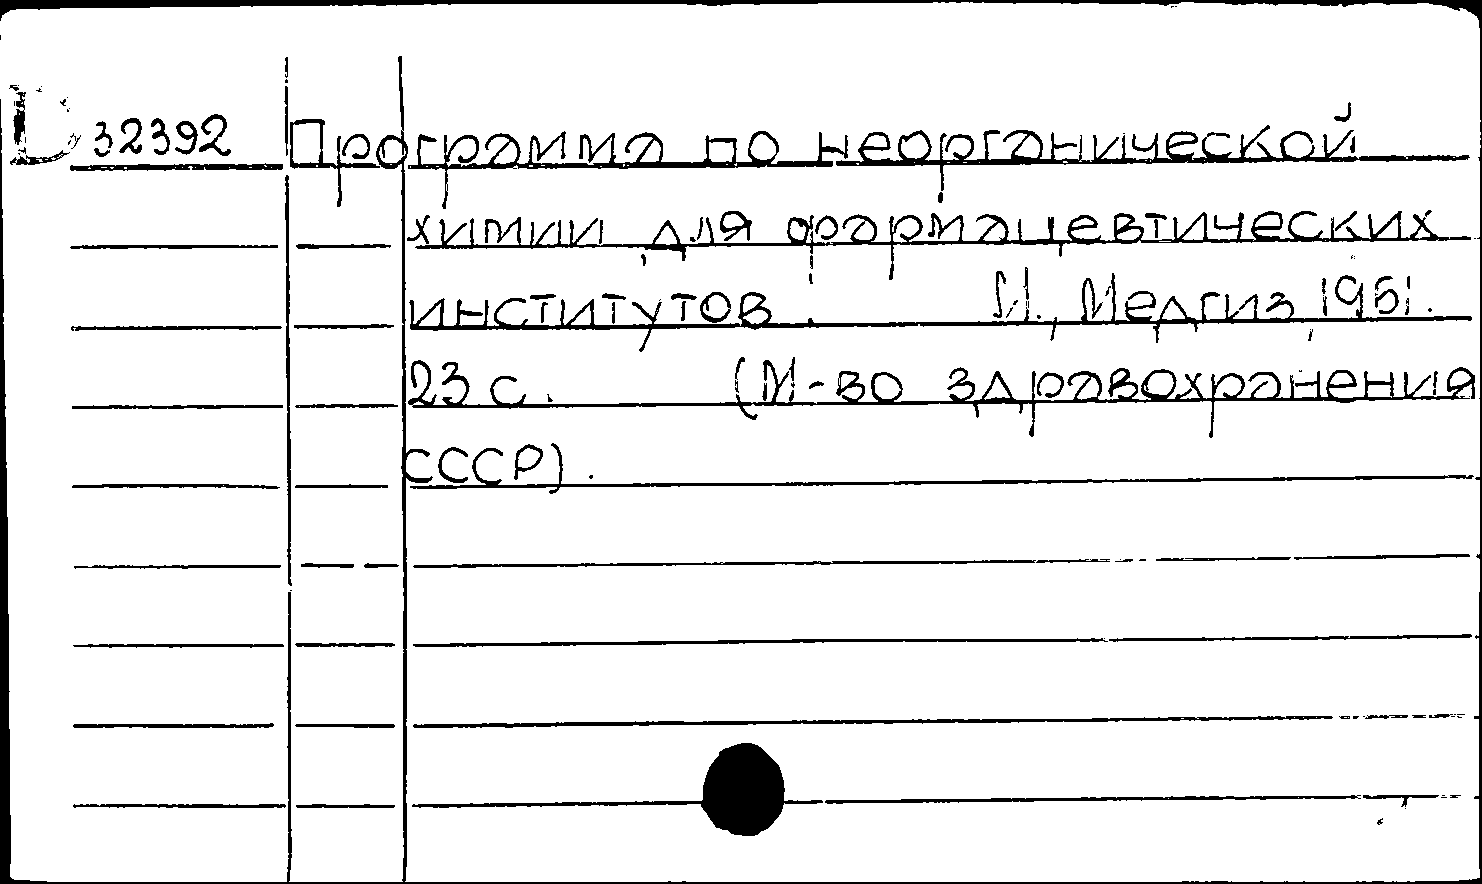 D 32392 Программа по неорганической
химии для фармацевтических
институтов. М., Медгиз, 1951.
23 с. (М-во здравохранения
СССР).